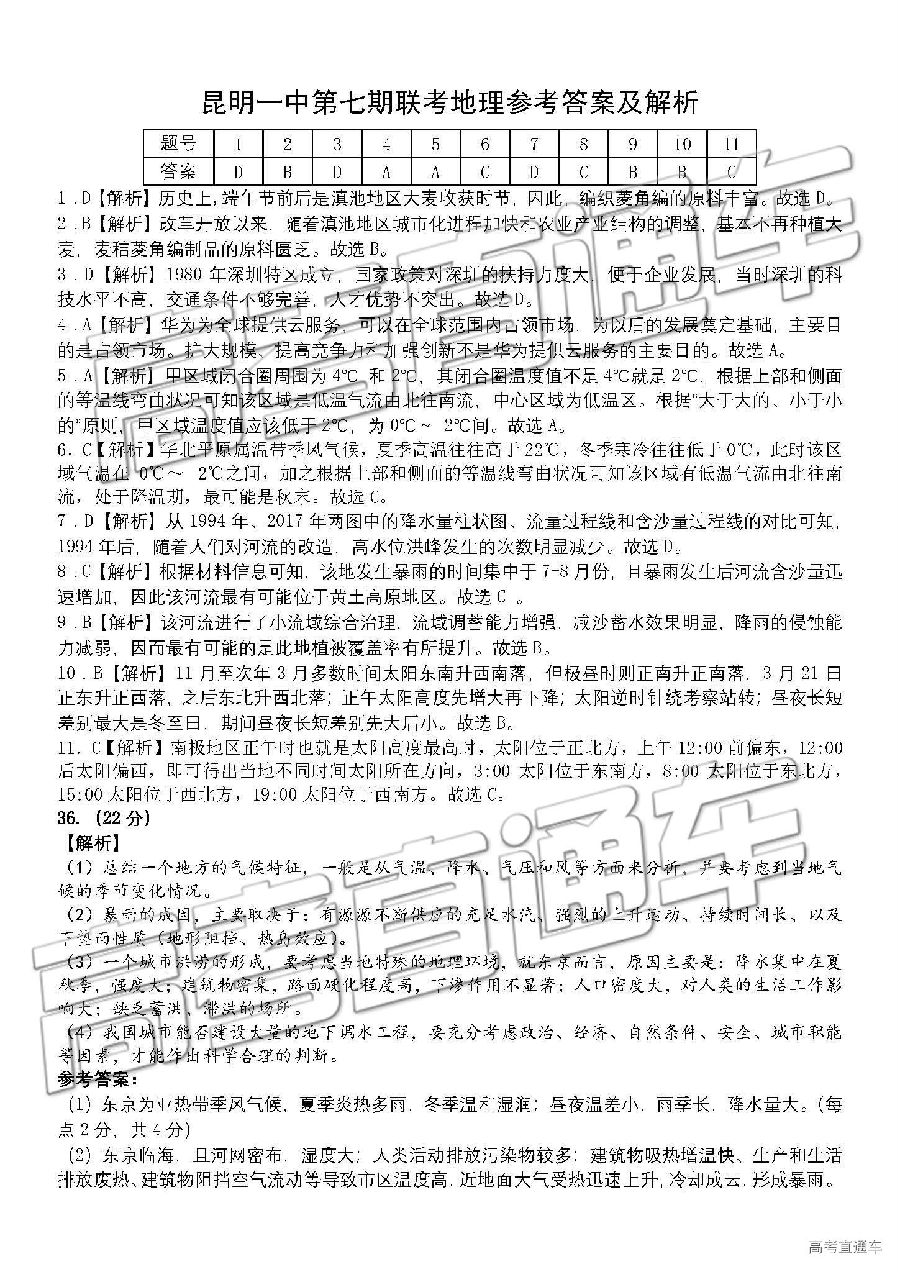 昆明一中第七期联考地理参考答案及解析
题号 1 2 3 4 5 6 7 8 9 10 11
答案 D B D A A C D C B B C
1．D【解析】历史上，端午节前后是滇池地区大麦收获时节，因此，编织菱角编的原料丰富。故选 D。
2．B【解析】改革开放以来，随着滇池地区城市化进程加快和农业产业结构的调整，基本不再种植大
麦，麦秸菱角编制品的原料匮乏。故选 B。
3．D【解析】1980 年深圳特区成立，国家政策对深圳的扶持力度大，便于企业发展，当时深圳的科
技水平不高，交通条件不够完善，人才优势不突出。故选 D。
4．A【解析】华为为全球提供云服务，可以在全球范围内占领市场，为以后的发展奠定基础，主要目
的是占领市场。扩大规模、提高竞争力和加强创新不是华为提供云服务的主要目的。故选 A。
5．A【解析】甲区域闭合圈周围为 4℃ 和 2℃，其闭合圈温度值不是 4℃就是 2℃，根据上部和侧面
的等温线弯曲状况可知该区域是低温气流由北往南流，中心区域为低温区。根据“大于大的、小于小
的”原则，甲区域温度应该低于 2℃，为 0℃～ 2℃间。故选 A。
6．C【解析】华北平原属温带季风气候，夏季高温往往高于 22℃，冬季寒冷往往低于 0℃，此时该区
域气温在 0℃～ 2℃之间，加之根据上部和侧面的等温线弯曲状况可知该区域有低温气流由北往南
流，处于降温期，最可能是秋末。故选 C。
7．D【解析】从 1994 年、2017 年两图中的降水量柱状图、流量过程线和含沙量过程线的对比可知，
1994 年后，随着人们对河流的改造，高水位洪峰发生的次数明显减少。故选 D。
8．C【解析】根据材料信息可知，该地发生暴雨的时间集中于 7-8 月份，且暴雨发生后河流含沙量迅
速增加，因此该河流最有可能位于黄土高原地区。故选 C 。
9．B【解析】该河流进行了小流域综合治理，流域调蓄能力增强，减沙蓄水效果明显，降雨的侵蚀能
力减弱，因而最有可能的是此地植被覆盖率有所提升。故选 B。
10．B【解析】11 月至次年 3 月多数时间太阳东南升西南落，但极昼时则正南升正南落，3 月 21 日
正东升正西落，之后东北升西北落；正午太阳高度先增大再下降；太阳逆时针绕考察站转；昼夜长短
差别最大是冬至日，期间昼夜长短差别先大后小。故选 B。
11．C【解析】南极地区正午时也就是太阳高度最高时，太阳位于正北方，上午 12:00 前偏东，12:00
后太阳偏西，即可得出当地不同时间太阳所在方向，3:00 太阳位于东南方，8:00 太阳位于东北方，
15:00 太阳位于西北方，19:00 太阳位于西南方。故选 C。
36.（22 分）
【解析】
（1）总结一个地方的气候特征，一般是从气温、降水、气压和风等方面来分析，并要考虑到当地气
候的季节变化情况。
（2）暴雨的成因，主要取决于：有源源不断供应的充足水汽、强烈的上升运动、持续时间长、以及
下垫面性质（地形阻挡、热岛效应）。
（3）一个城市洪涝的形成，要考虑当地特殊的地理环境，就东京而言，原因主要是：降水集中在夏
秋季，强度大；建筑物密集，路面硬化程度高，下渗作用不显著；人口密度大，对人类的生活工作影
响大；缺乏蓄洪、滞洪的场所。
（4）我国城市能否建设大量的地下调水工程，要充分考虑政治、经济、自然条件、安全、城市职能
等因素，才能作出科学合理的判断。
参考答案：
（1）东京为亚热带季风气候，夏季炎热多雨，冬季温和湿润；昼夜温差小，雨季长，降水量大。（每
点 2 分，共 4 分）
（2）东京临海，且河网密布，湿度大；人类活动排放污染物较多；建筑物吸热增温快、生产和生活
排放废热、建筑物阻挡空气流动等导致市区温度高，近地面大气受热迅速上升，冷却成云，形成暴雨。
高考直通车
高考直通车
高考直通车